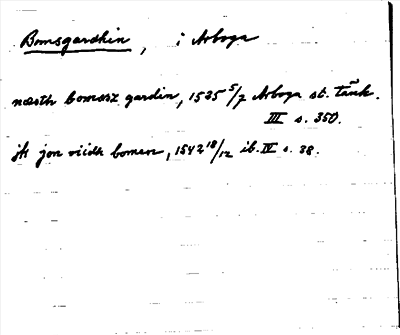 Bomsgardhin, i Arboga
næsth bomasz gardin, 1535 5/7 Arboga st. tänk.
III s. 350.
jtt jon viidh bomen, 1542 18/12 ib. IV s. 38.